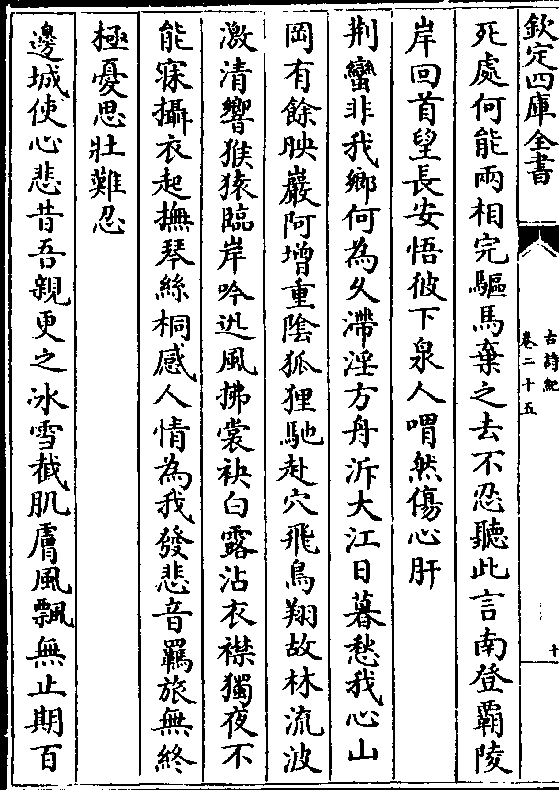 欽定四庫全書
古詩紀
卷二十五
十
死處何能兩相完驅馬棄之去不忍聽此言南登霸陵
岸回首望長安悟彼下泉人喟然傷心肝
荆蠻非我鄉何為久滯淫方舟泝大江日暮愁我心山
岡有餘映巖阿增重陰狐狸馳赴穴飛鳥翔故林流波
激清響猴猿臨岸吟迅風拂裳袂白露沾衣襟獨夜不
能寐攝衣起撫琴絲桐感人情為我發悲音羈旅無終
極憂思壯難忍
邊城使心悲昔吾親更之冰雪截肌膚風飄無止期百